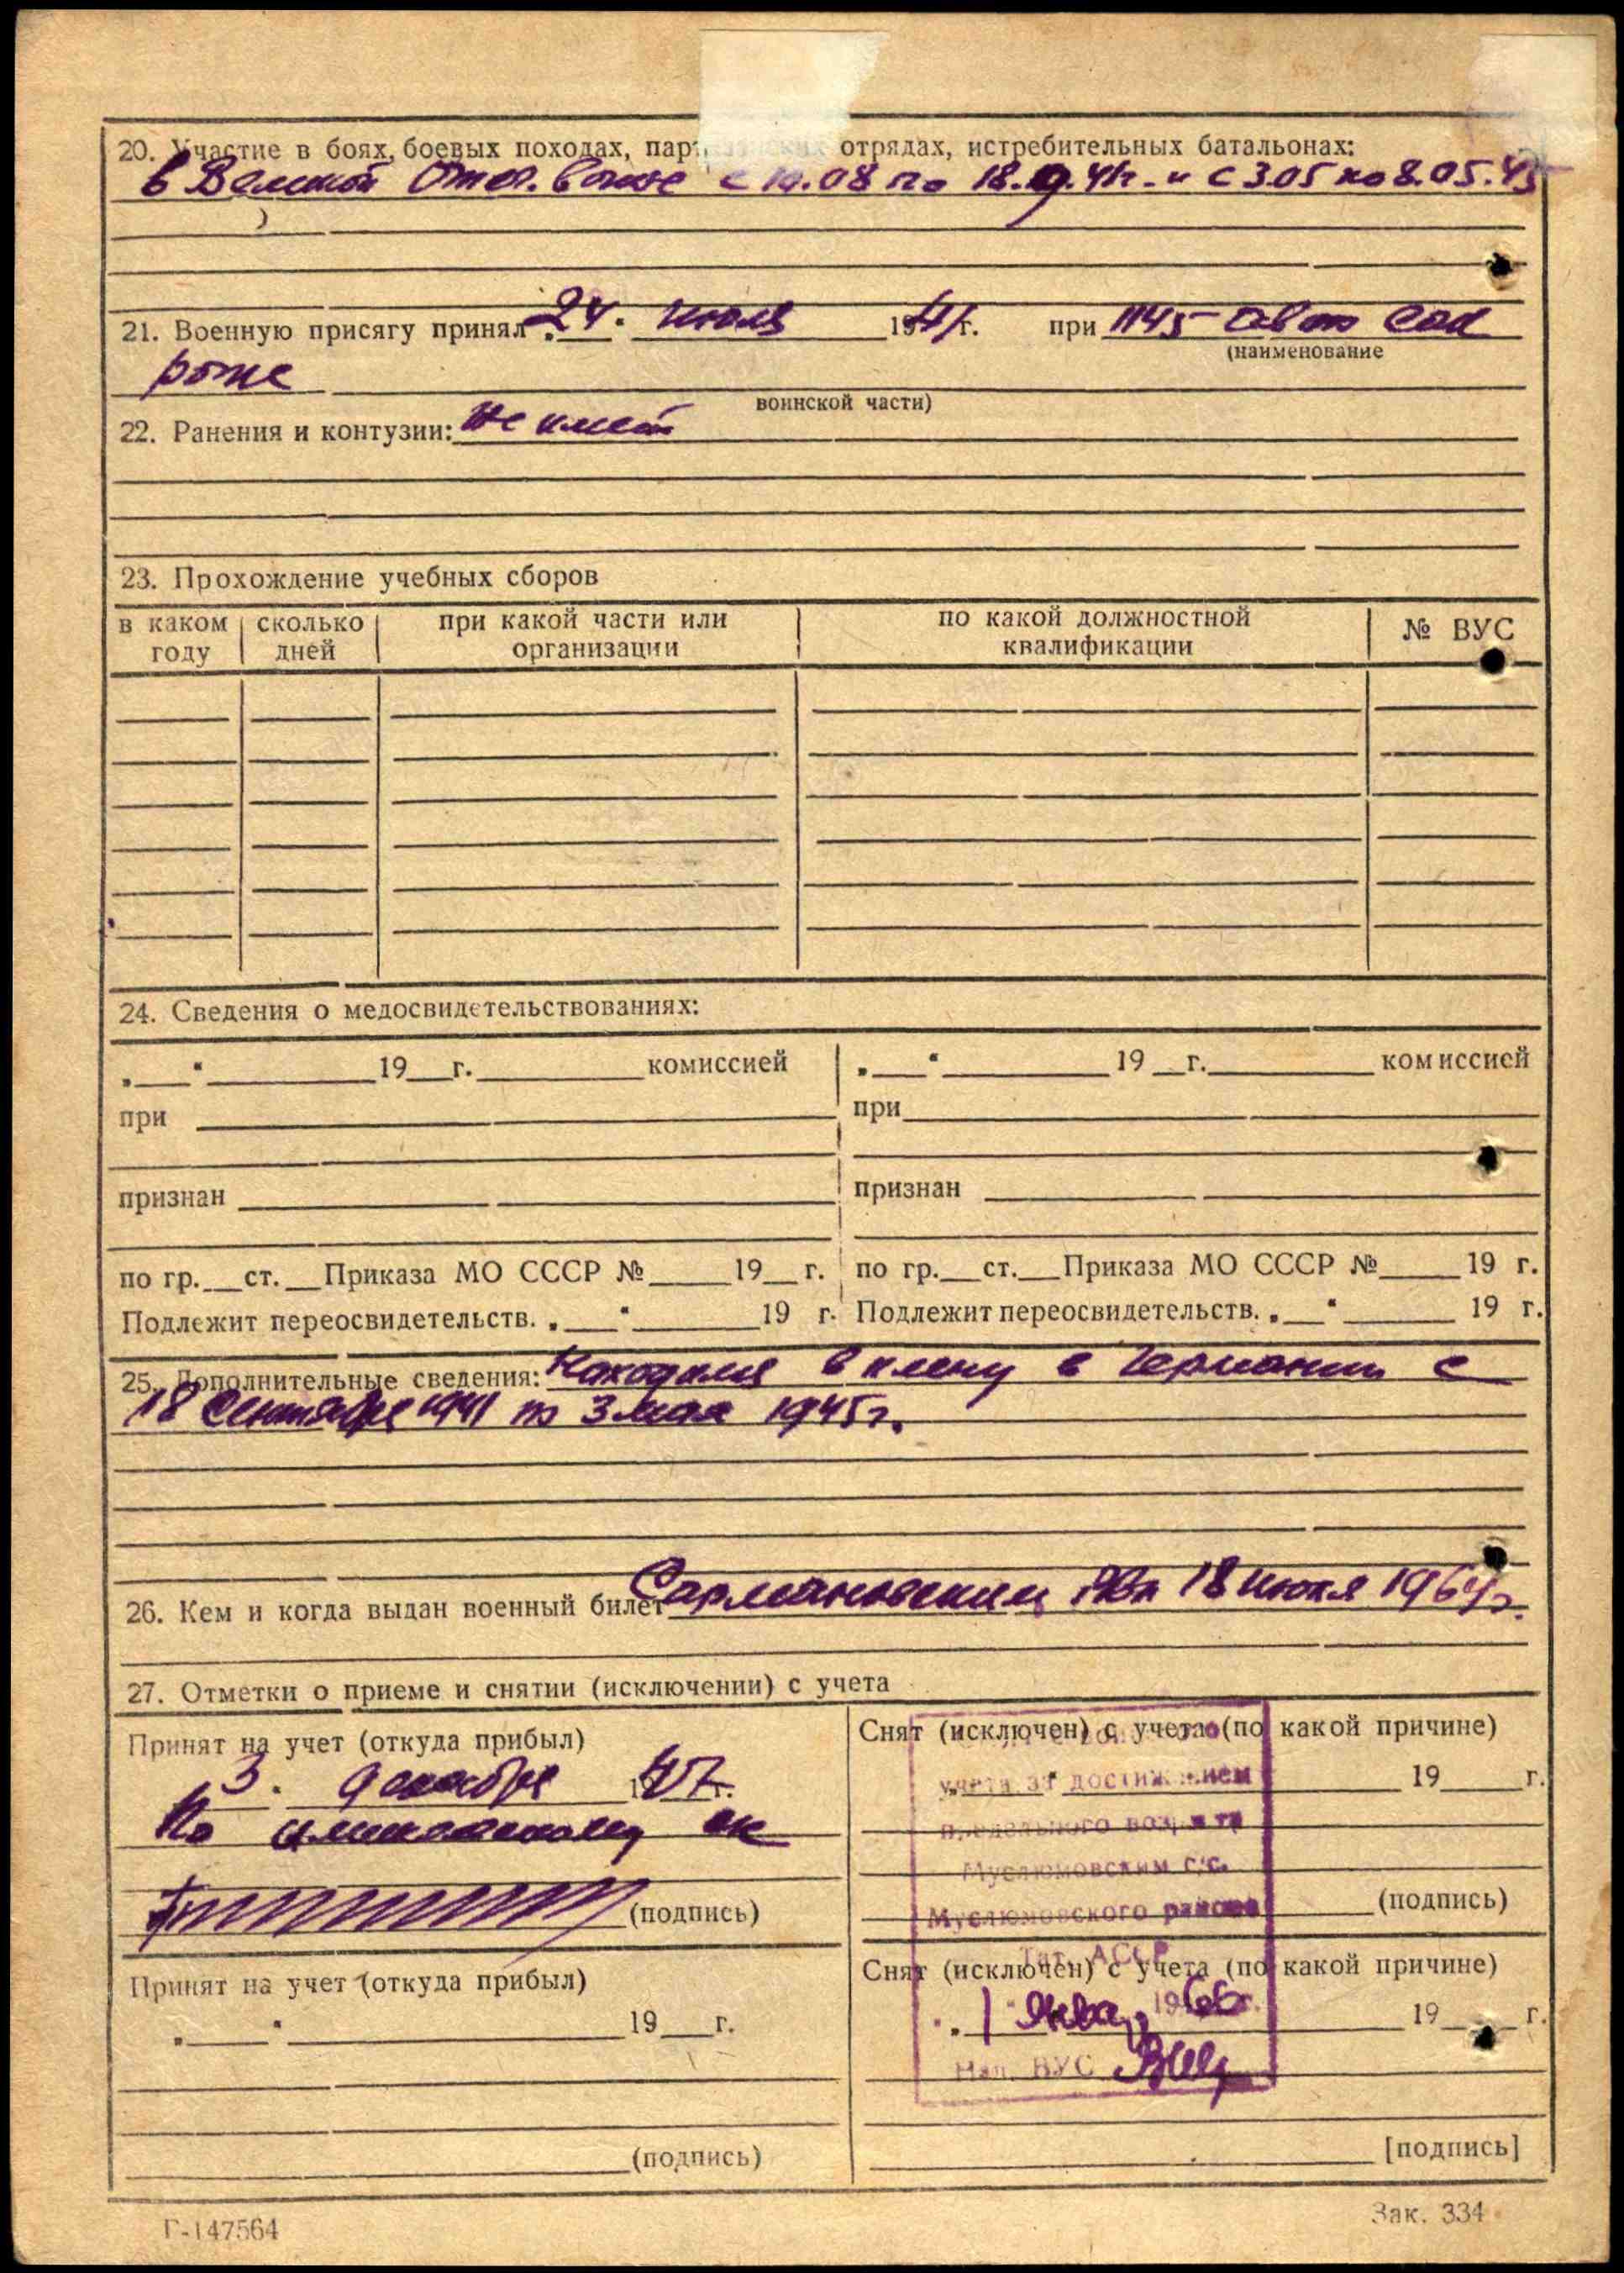 20. Участие в боях, боевых походах, отрядах, истребительных батальонах:
в Великой Отеч. войне с 10.08 по 18.9.41г. и с 3.05 по 8.05.45
21. Военную присягу принял 24. июля 1941г. при 1145 авто сап
(наименование
роте
воинской части)
22. Ранения и контузии: не имеет
23. Прохождение учебных сборов
в каком году сколько дней при какой части или организации по какой должностной квалификации № ВУС
24. Сведения о медосвидетельствованиях:
„ “ 19 г. комиссией „ “ 19 г. комиссией
при при
признан признан
по гр. ст. Приказа МО СССР № 19 г. по гр. ст. Приказа МО СССР № 19 г.
Подлежит переосвидетельств. „ “ 19 г. Подлежит переосвидетельств. „ “ 19 г.
25. Дополнительные сведения: Находился в плену в Германии с
18 Сентября 1941 по 3 мая 1945г.
26. Кем и когда выдан военный билет Сармановским РВК 18 июля 1964г.
27. Отметки о приеме и снятии (исключении) с учета
Принят на учет (откуда прибыл)
3. декабря 1957г.
По
(подпись)
Принят на учет (откуда прибыл)
„ “ 19 г.
(подпись)
Снят (исключен) с учета (по какой причине)
19 г.
учета за достижением
предельного возраста
Муслюмовским с/с.
Муслюмовского района
(подпись)
Тат. АССР
Снят (исключен) с учета (по какой причине)
1 Янва, 1966г.
19 г.
Нач. ВУС
[подпись]
Г-147564
Зак. 334